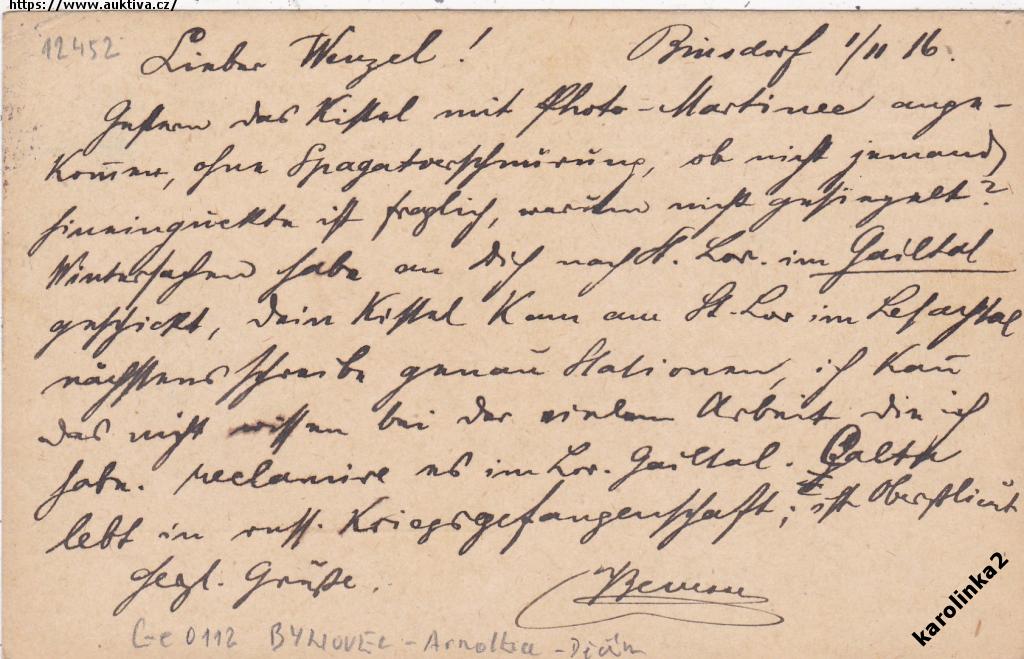 https://www.auktiva.cz/
12452
Lieber Wenzel! Binsdorf 1/11 16.
Gestern das Kistel mit Photo-Martinee ange-
kom̅en, ohne Spagatverschnürung, ob nicht jemand
hineinguckte ist fraglich, warum nicht gesiegelt?
Wintersachen habe an Dich nach St. Lor. im Gailtal
geschickt, dein Kistel kam am St. Lor im Lesachtal
nächstens schreibe genau Stationen, ich kan̅
das nicht wissen bei der vielen Arbeit die ich
habe. reclamire es im Lor. Gailtal.
lebt in russ. Kriegsgefangenschaft; ist Oberstlieut
herzl. Grüße.
Ge 0112 BYNOVEC - Arnoltice -
karolinka2